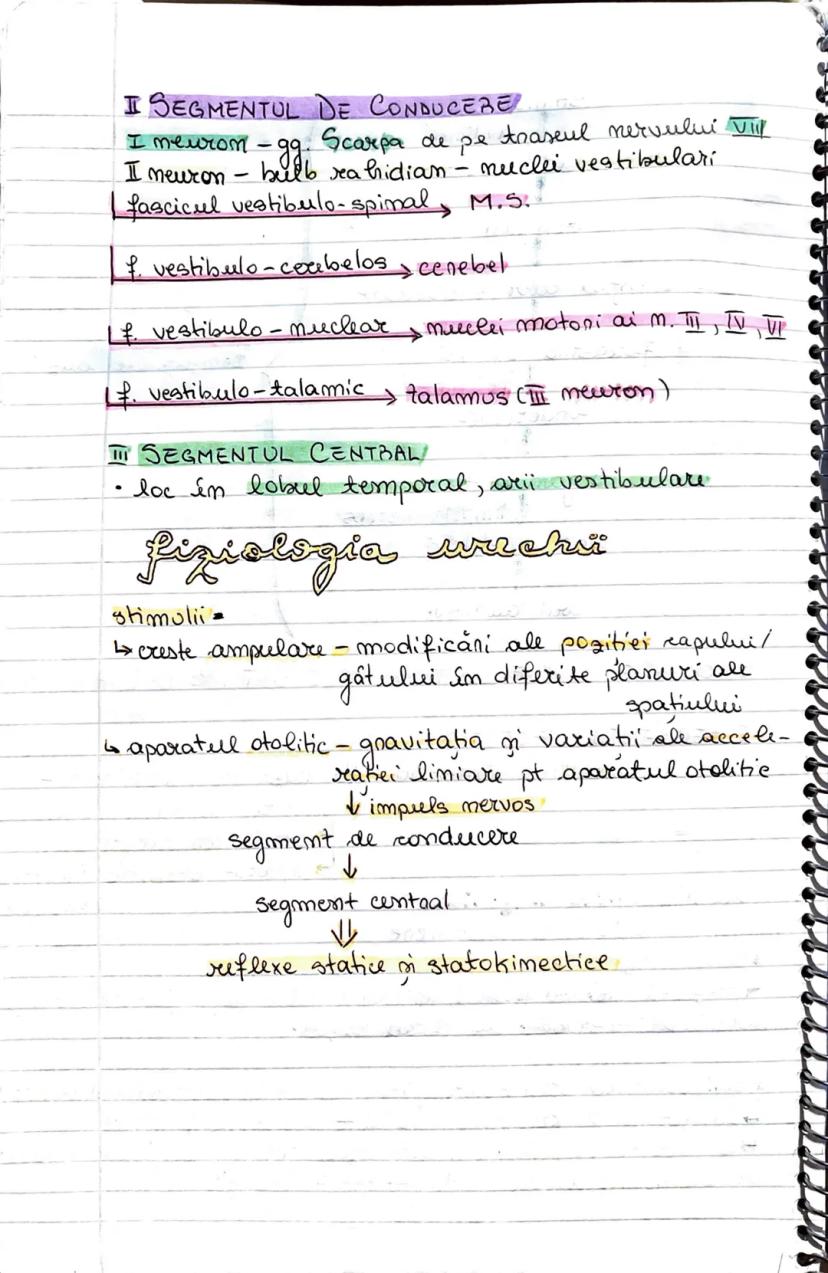 II SEGMENTUL DE CONDUCERE
I neuron - gg. Scarpa de pe traseul nervului VIII
II neuron - bulb rahidian - nuclei vestibulari
fascicul vestibulo-spinal → M.S.
f. vestibulo-cerebelos → cerebel
f. vestibulo-nuclear → nuclei motori ai n. III, IV, VI
f. vestibulo-talamic → talamus (III neuron)
III SEGMENTUL CENTRAL
• loc în lobul temporal, arii vestibulare
fiziologia urechii
stimulii =
↳ creste ampulare - modificări ale poziției capului/
gâtului în diferite planuri ale
spațiului
↳ aparatul otolitic - gravitația și variații ale accele-
rației liniare pt aparatul otolitic
↓ impuls nervos
segment de conducere
↓
segment central
⇓
reflexe statice și statokinectice